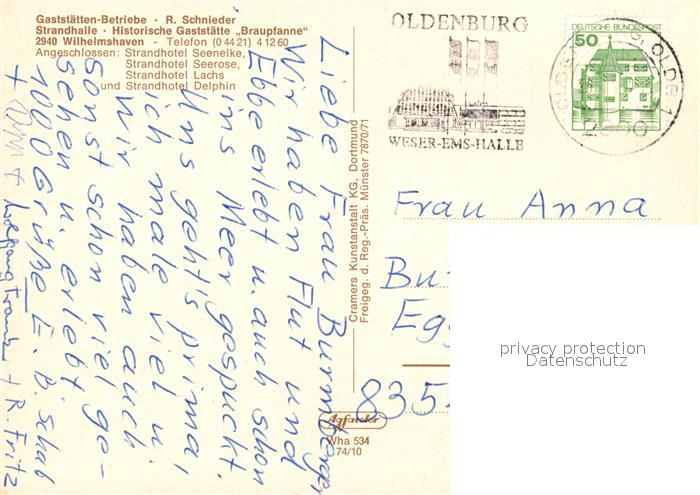 Gaststätten-Betriebe - R. Schnieder
Strandhalle · Historische Gaststätte „Braupfanne"
2940 Wilhelmshaven - Telefon (0 44 21) 4 12 60
Angeschlossen: Strandhotel Seenelke,
Strandhotel Seerose,
Strandhotel Lachs
und Strandhotel Delphin
Liebe Frau Burmberger
Wir haben Flut und
Ebbe erlebt u. auch schon
ins Meer gespuckt.
Uns geht's prima,
ich male viel u.
wir haben auch
sonst schon viel ge-
sehen u. erlebt
1000 Grüße E. B. Schab
+ Wolfgang + R. Fritz
Cramers Kunstanstalt KG, Dortmund
Freigeg. d. Reg.-Präs. Münster 7870/71
OLDENBURG
WESER-EMS-HALLE
DEUTSCHE BUNDESPOST
50
OLDB 1
Frau Anna
Bu
Egg
835
Wha 534
74/10
privacy protection
Datenschutz